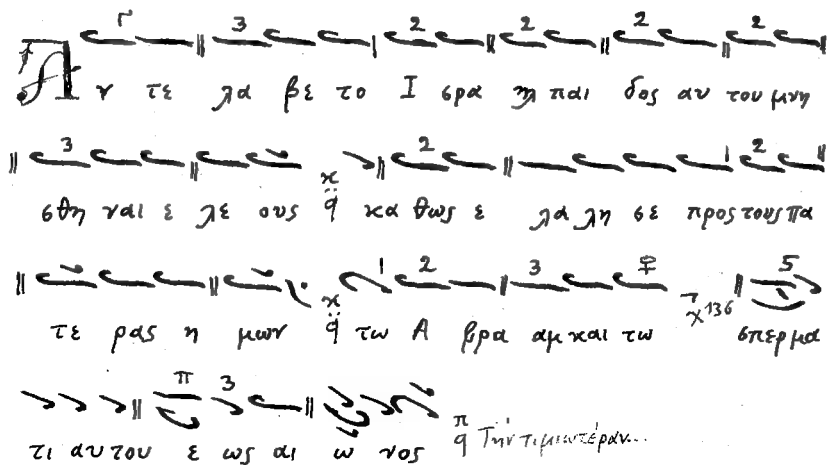 Α ν τε λα βε το Ι σρα ηλ παι δος αυ του μνη
σθη ναι ε λε ους κα θως ε λα λη σε προς τους πα
τε ρας η μων τω Α βρα αμ και τω σπερμα
τι αυ του ε ως αι ω νος Τὴν τιμιωτέραν...